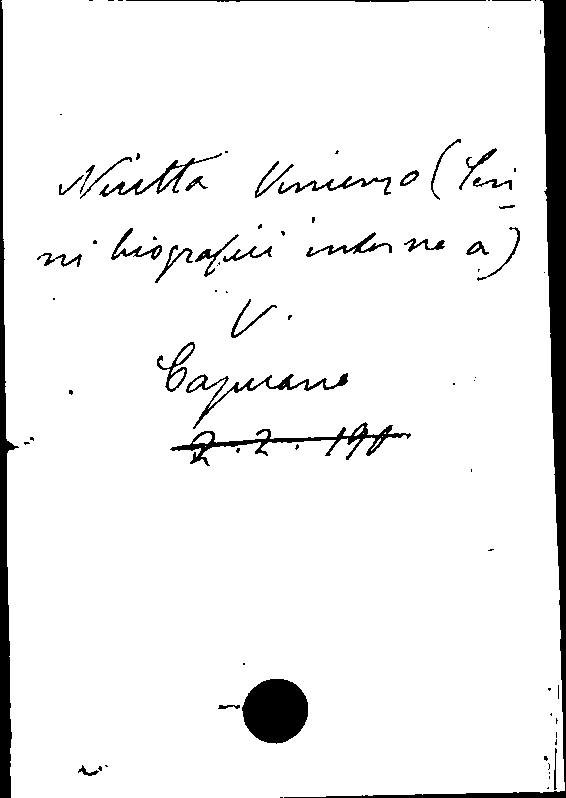 Nicetta Vincenzo (Cen
ni biografici interno a)
V.
Capuana
2.2.190